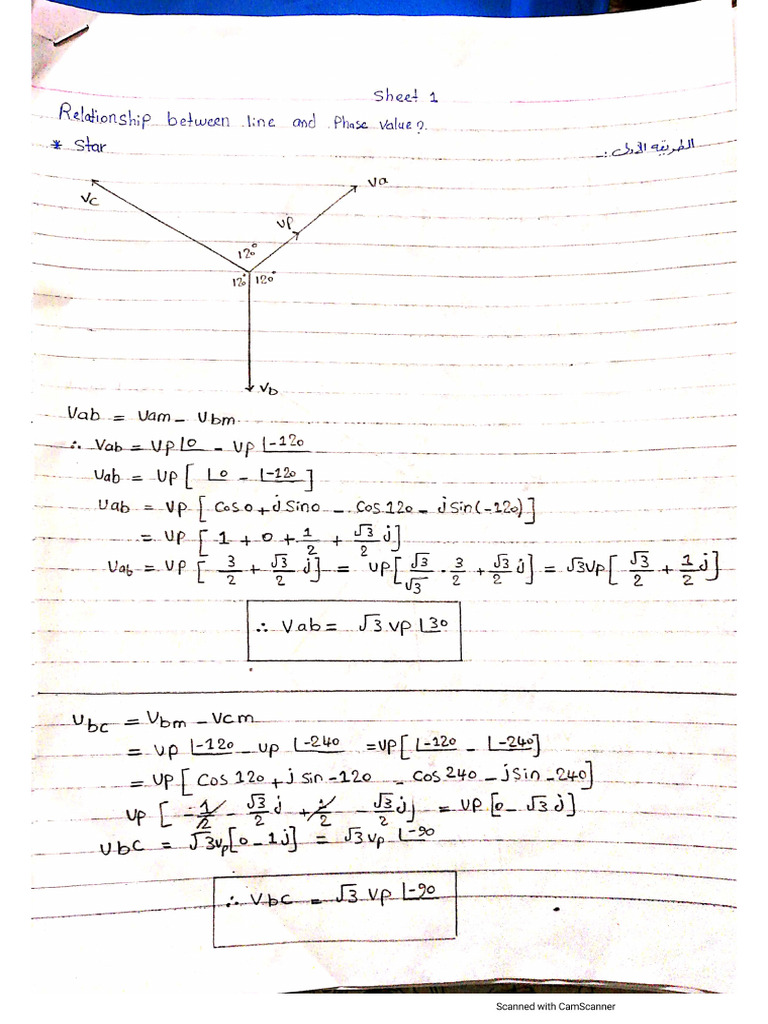 Sheet 1
Relationship between line and Phase value?
* Star
الطريقه الأولى :-
Va
Vc
VP
120°
120° 120°
Vb
Vab = Vam - Vbm
∴ Vab = VP∠0 - VP∠-120
Vab = VP[∠0 - ∠-120]
Vab = VP[cos0+jsin0 - cos120 - jsin(-120)]
= VP[1 + 0 + 1/2 + √3/2 j]
Vab = VP[3/2 + √3/2 j] = VP[√3/√3 · 3/2 + √3/2 j] = √3VP[√3/2 + 1/2 j]
∴ Vab = √3 VP∠30
Vbc = Vbm - Vcm
= VP∠-120 - VP∠-240 = VP[∠-120 - ∠-240]
= VP[cos120 + j sin -120 - cos240 - jsin -240]
VP[-1/2 - √3/2 j + 1/2 - √3/2 j] = VP[0 - √3 j]
Vbc = √3Vp[0 - 1j] = √3 VP∠-90
∴ Vbc = √3 VP∠-90
Scanned with CamScanner